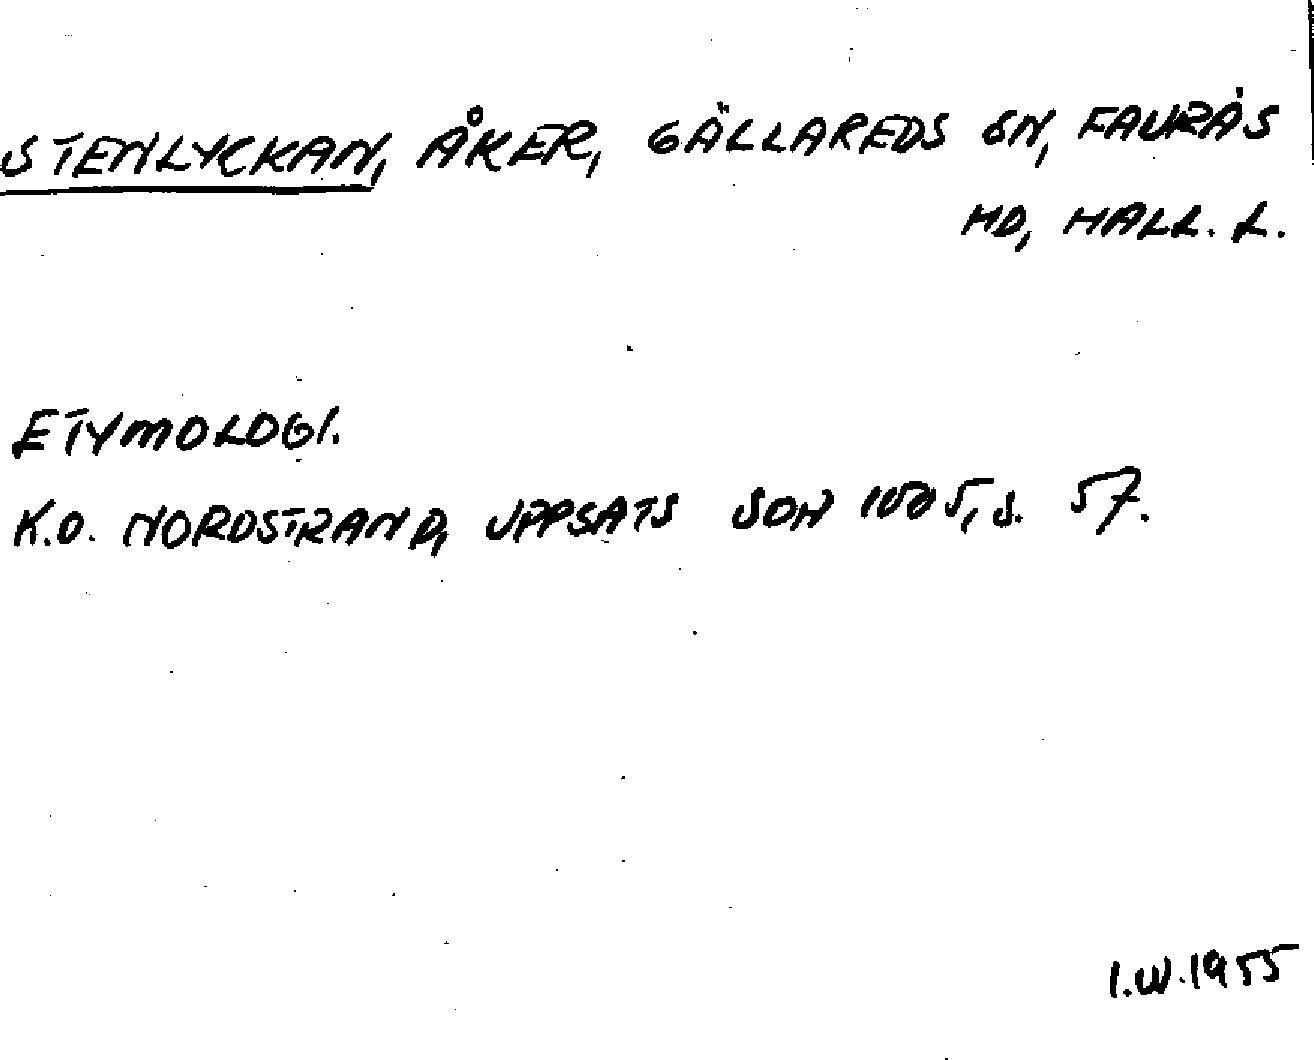 STENLYCKAN, ÅKER, GÄLLAREDS SN, FAURÅS
HD, HALL. L.
ETYMOLOGI.
K.O. NORDSTRAND, UPPSATS SOH S, S. 57.
I.W. 1955